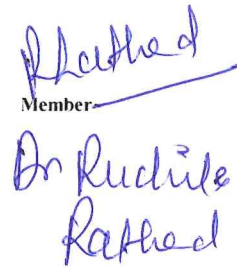 RRathod
Member
Dr Ruchita
Rathod